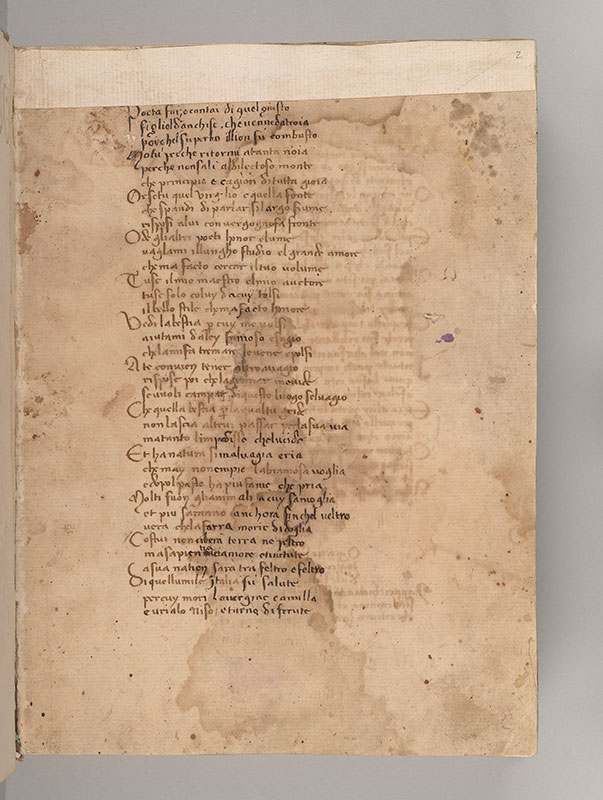 2
Poeta fui, e cantai di quel giusto
figliol danchise, che venne datroia
poi chel superbo ilion fu combusto
Ma tu perche ritorni a tanta noia
perche non sali al dilectoso monte
che principio e cagion di tutta gioia
Or se tu quel virgilio e quella fonte
che spandi di parlar si largo fiume
risposi alui con vergognosa fronte
O degli altri poeti honor e lume
vagliami il lungho studio el grande amore
che ma facto cercar il tuo volume
Tu se il mio maestro el mio auctore
tu se solo coluy da cuy tolsi
il bello stile che ma facto honore
Vedi la bestia per cuy me volsi
aiutami da ley famoso e sagio
che la mi fa tremare le vene e polsi
A te convien tener altro viagio
rispose poi che lagrimar me vide
se vuoli campar di questo luogo selvagio
Che quella bestia per la qual tu gride
non lascia altrui passar per la sua via
ma tanto limpedisse che lucide
Et ha natura si malvagia e ria
che may non empie la bramosa voglia
e dopo l pasto ha piu fame che pria
Molti suon gli animali a cuy samoglia
et piu saranno anchora fin chel veltro
vera che la farra morir di doglia
Costui non cibera terra ne peltro
ma sapientia et amore e virtute
& sua nation sara tra feltro e feltro
Di quell umile Italia fu salute
per cuy mori la vergine camilla
eurialo Niso, e turno di ferute